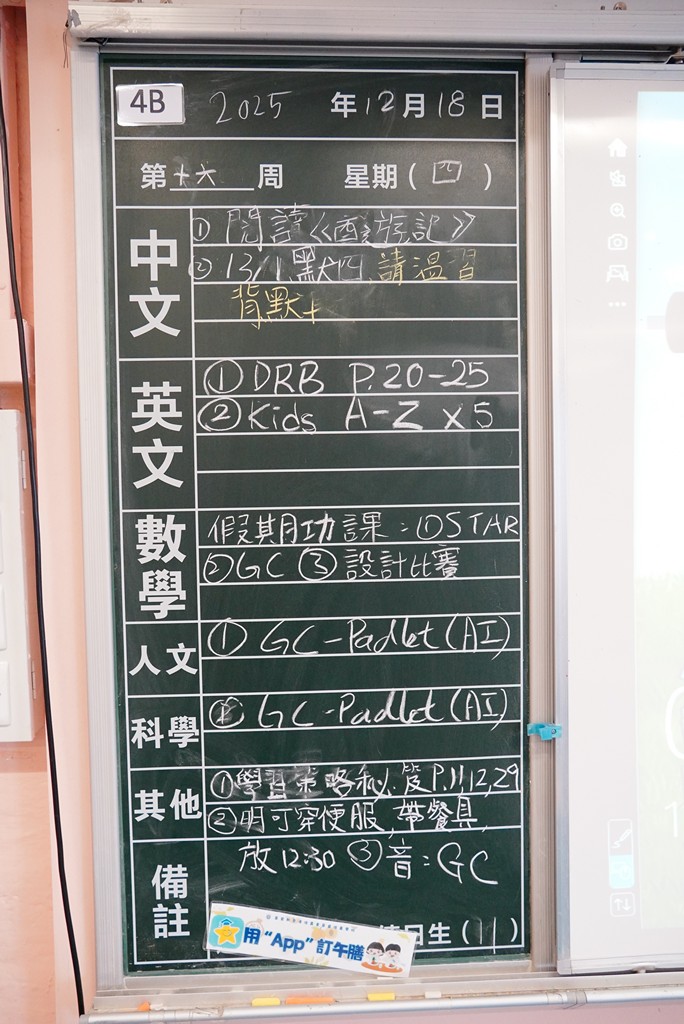 4B 2025 年 12 月 18 日
第 十六 周 星期 ( 四 )
中文
① 閱讀《西遊記》
② 13/1 默四 請溫習
背默
英文
① DRB P.20-25
② Kids A-Z x5
數學
假期功課：① STAR
② GC ③ 設計比賽
人文
① GC-Padlet (AI)
科學
① GC-Padlet (AI)
其他
① 學習策略秘笈 P.11,12,29
② 明可穿便服，帶餐具，
備註
放 12:30 ③ 音：GC
日生 ( 11 )
用 “App” 訂午膳